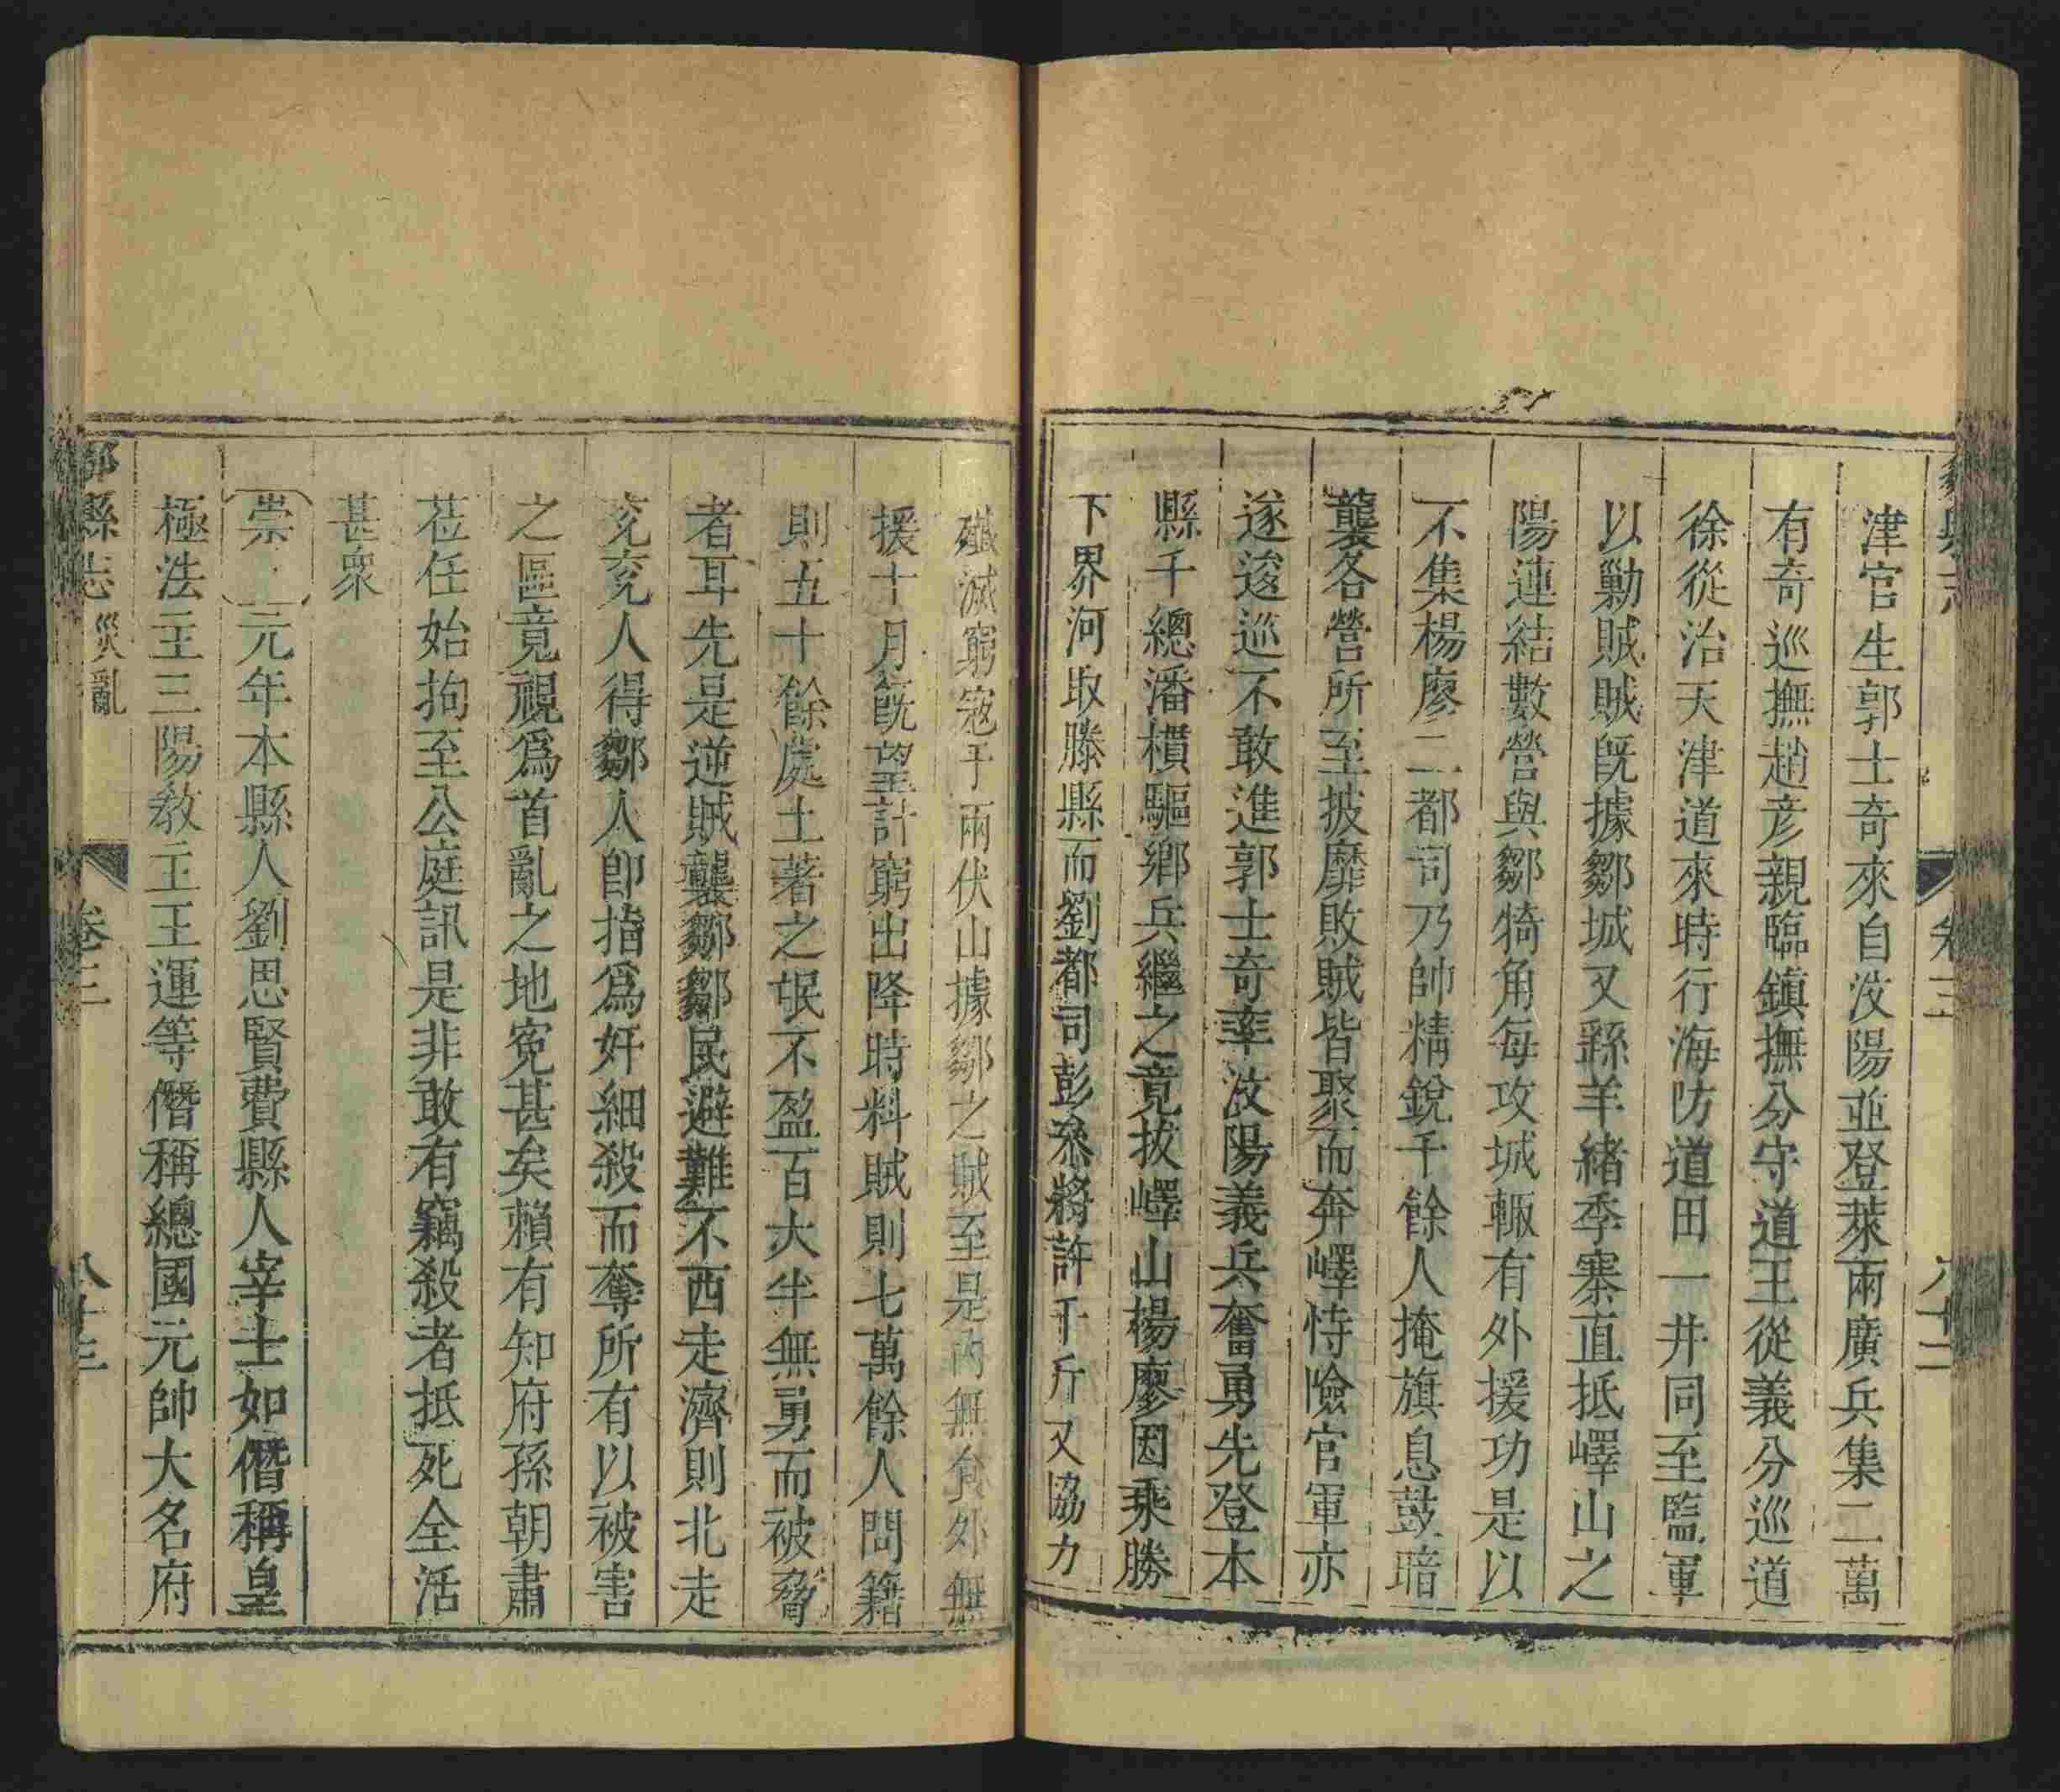 津官生郭士奇來自汶陽並登萊兩廣兵集二萬
有奇巡撫趙彦親臨鎮撫分守道王從義分巡道
徐從治天津道來時行海防道田一井同至監軍
以勦賊賊旣據鄒城又繇羊緒季寨直抵嶧山之
陽連結數營與鄒犄角每攻城輙有外援功是以
不集楊廖二都司乃帥精銳千餘人掩旗息鼓暗
襲各營所至披靡敗賊皆聚而奔嶧恃險官軍亦
遂逡巡不敢進郭士奇率汶陽義兵奮勇先登本
縣千總潘樻驅鄉兵繼之竟拔嶧山楊廖因乘勝
下界河取滕縣而劉都司彭叅將許千斤又協力
殲滅窮寇于兩伏山據鄒之賊至是內無食外無
援十月旣望計窮出降時料賊則七萬餘人問籍
則五十餘處土著之氓不盈百大半無勇而被脅
者耳先是逆賊襲鄒鄒民避難不西走濟則北走
兖兖人得鄒人卽指爲奸細殺而奪所有以被害
之區竟視爲首亂之地寃甚矣賴有知府孫朝肅
莅任始拘至公庭訊是非敢有竊殺者抵死全活
甚衆
崇 元年本縣人劉思賢費縣人宰士如僭稱皇
極法王三陽教王王運等僭稱總國元帥大名府
鄒縣志 災亂 卷三 八十三